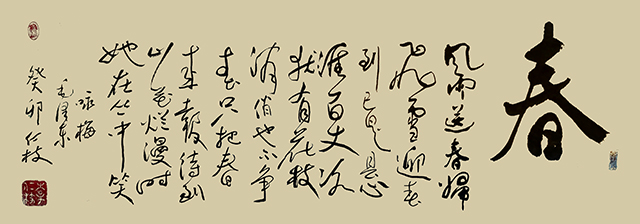 春
风雨送春歸
飛雪迎春
到已是悬
涯百丈冰
犹有花枝
俏俏也不争
春只把春
来報待到
山花烂漫时
她在丛中笑
咏梅
毛泽东
癸卯仁枝